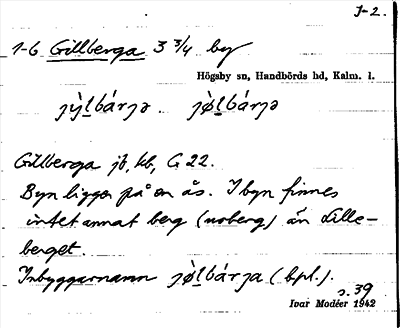 I-2.
1-6 Gillberga 3 3/4 by
Högsby sn, Handbörds hd, Kalm. l.
jỳl̲bárjə. jø̀l̲bárjə
Gillberga jb, kb, G 22.
Byn ligger på en ås. I byn finnes
intet annat berg (urberg) än Lille-
berget.
Inbyggarnamn jø̀l̲bárja (bpl.).
s. 39
Ivar Modéer 1942